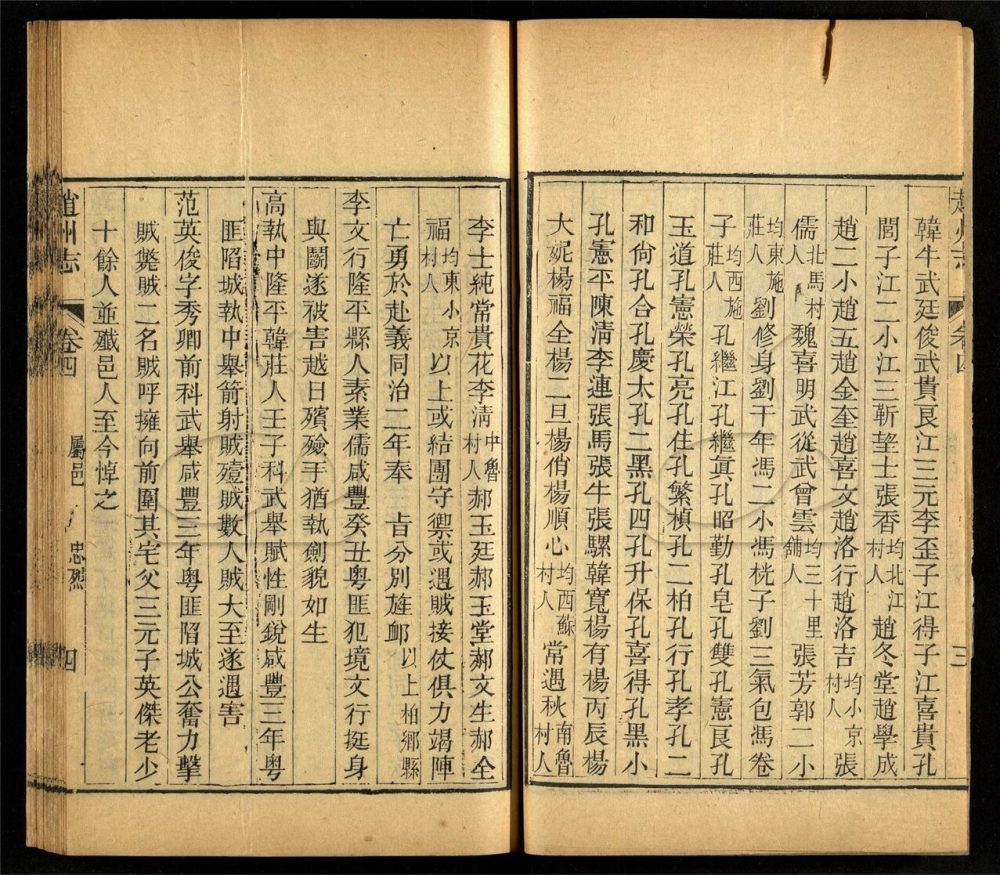 趙州志 卷四 三
韓牛武廷俊武貴良江三元李歪子江得子江喜貴孔
閻子江二小江三靳望士張香均北江村人趙冬堂趙學成
趙二小趙五趙金奎趙喜文趙洛行趙洛吉均小京村人張
儒北馬村人魏喜明武從武曾雲均三十里舖人張芳郭二小
均東施莊人劉修身劉干年馮二小馮桄子劉三氣包馮卷
子均西施莊人孔繼江孔繼真孔昭勤孔皂孔雙孔憲良孔
玉道孔憲榮孔亮孔住孔繁楨孔二柏孔行孔孝孔二
和尙孔合孔慶太孔二黑孔四升保孔喜得孔黑小
孔憲平陳淸李連張馬張牛張騾韓寬楊有楊丙辰楊
大妮楊福全楊二旦楊俏楊順心均西穌村人常遇秋南魯村人
李士純常貴花李淸中魯村人郝玉廷郝玉堂郝文生郝全
福均東小京村人以上或結團守禦或遇賊接仗俱力竭陣
亡勇於赴義同治二年奉 旨分別旌卹以上柏鄉縣
李文行隆平縣人素業儒咸豐癸丑粵匪犯境文行挺身
與鬭遂被害越日殯殮手猶執劍貌如生
高執中隆平韓莊人壬子科武舉賦性剛銳咸豐三年粵
匪陷城執中舉箭射賊殪賊數人賊大至遂遇害
范英俊字秀卿前科武舉咸豐三年粵匪陷城公奮力擊
賊斃賊二名賊呼擁向前圍其宅父三元子英傑老少
十餘人並殲邑人至今悼之
趙州志 卷四 屬邑 忠烈 四